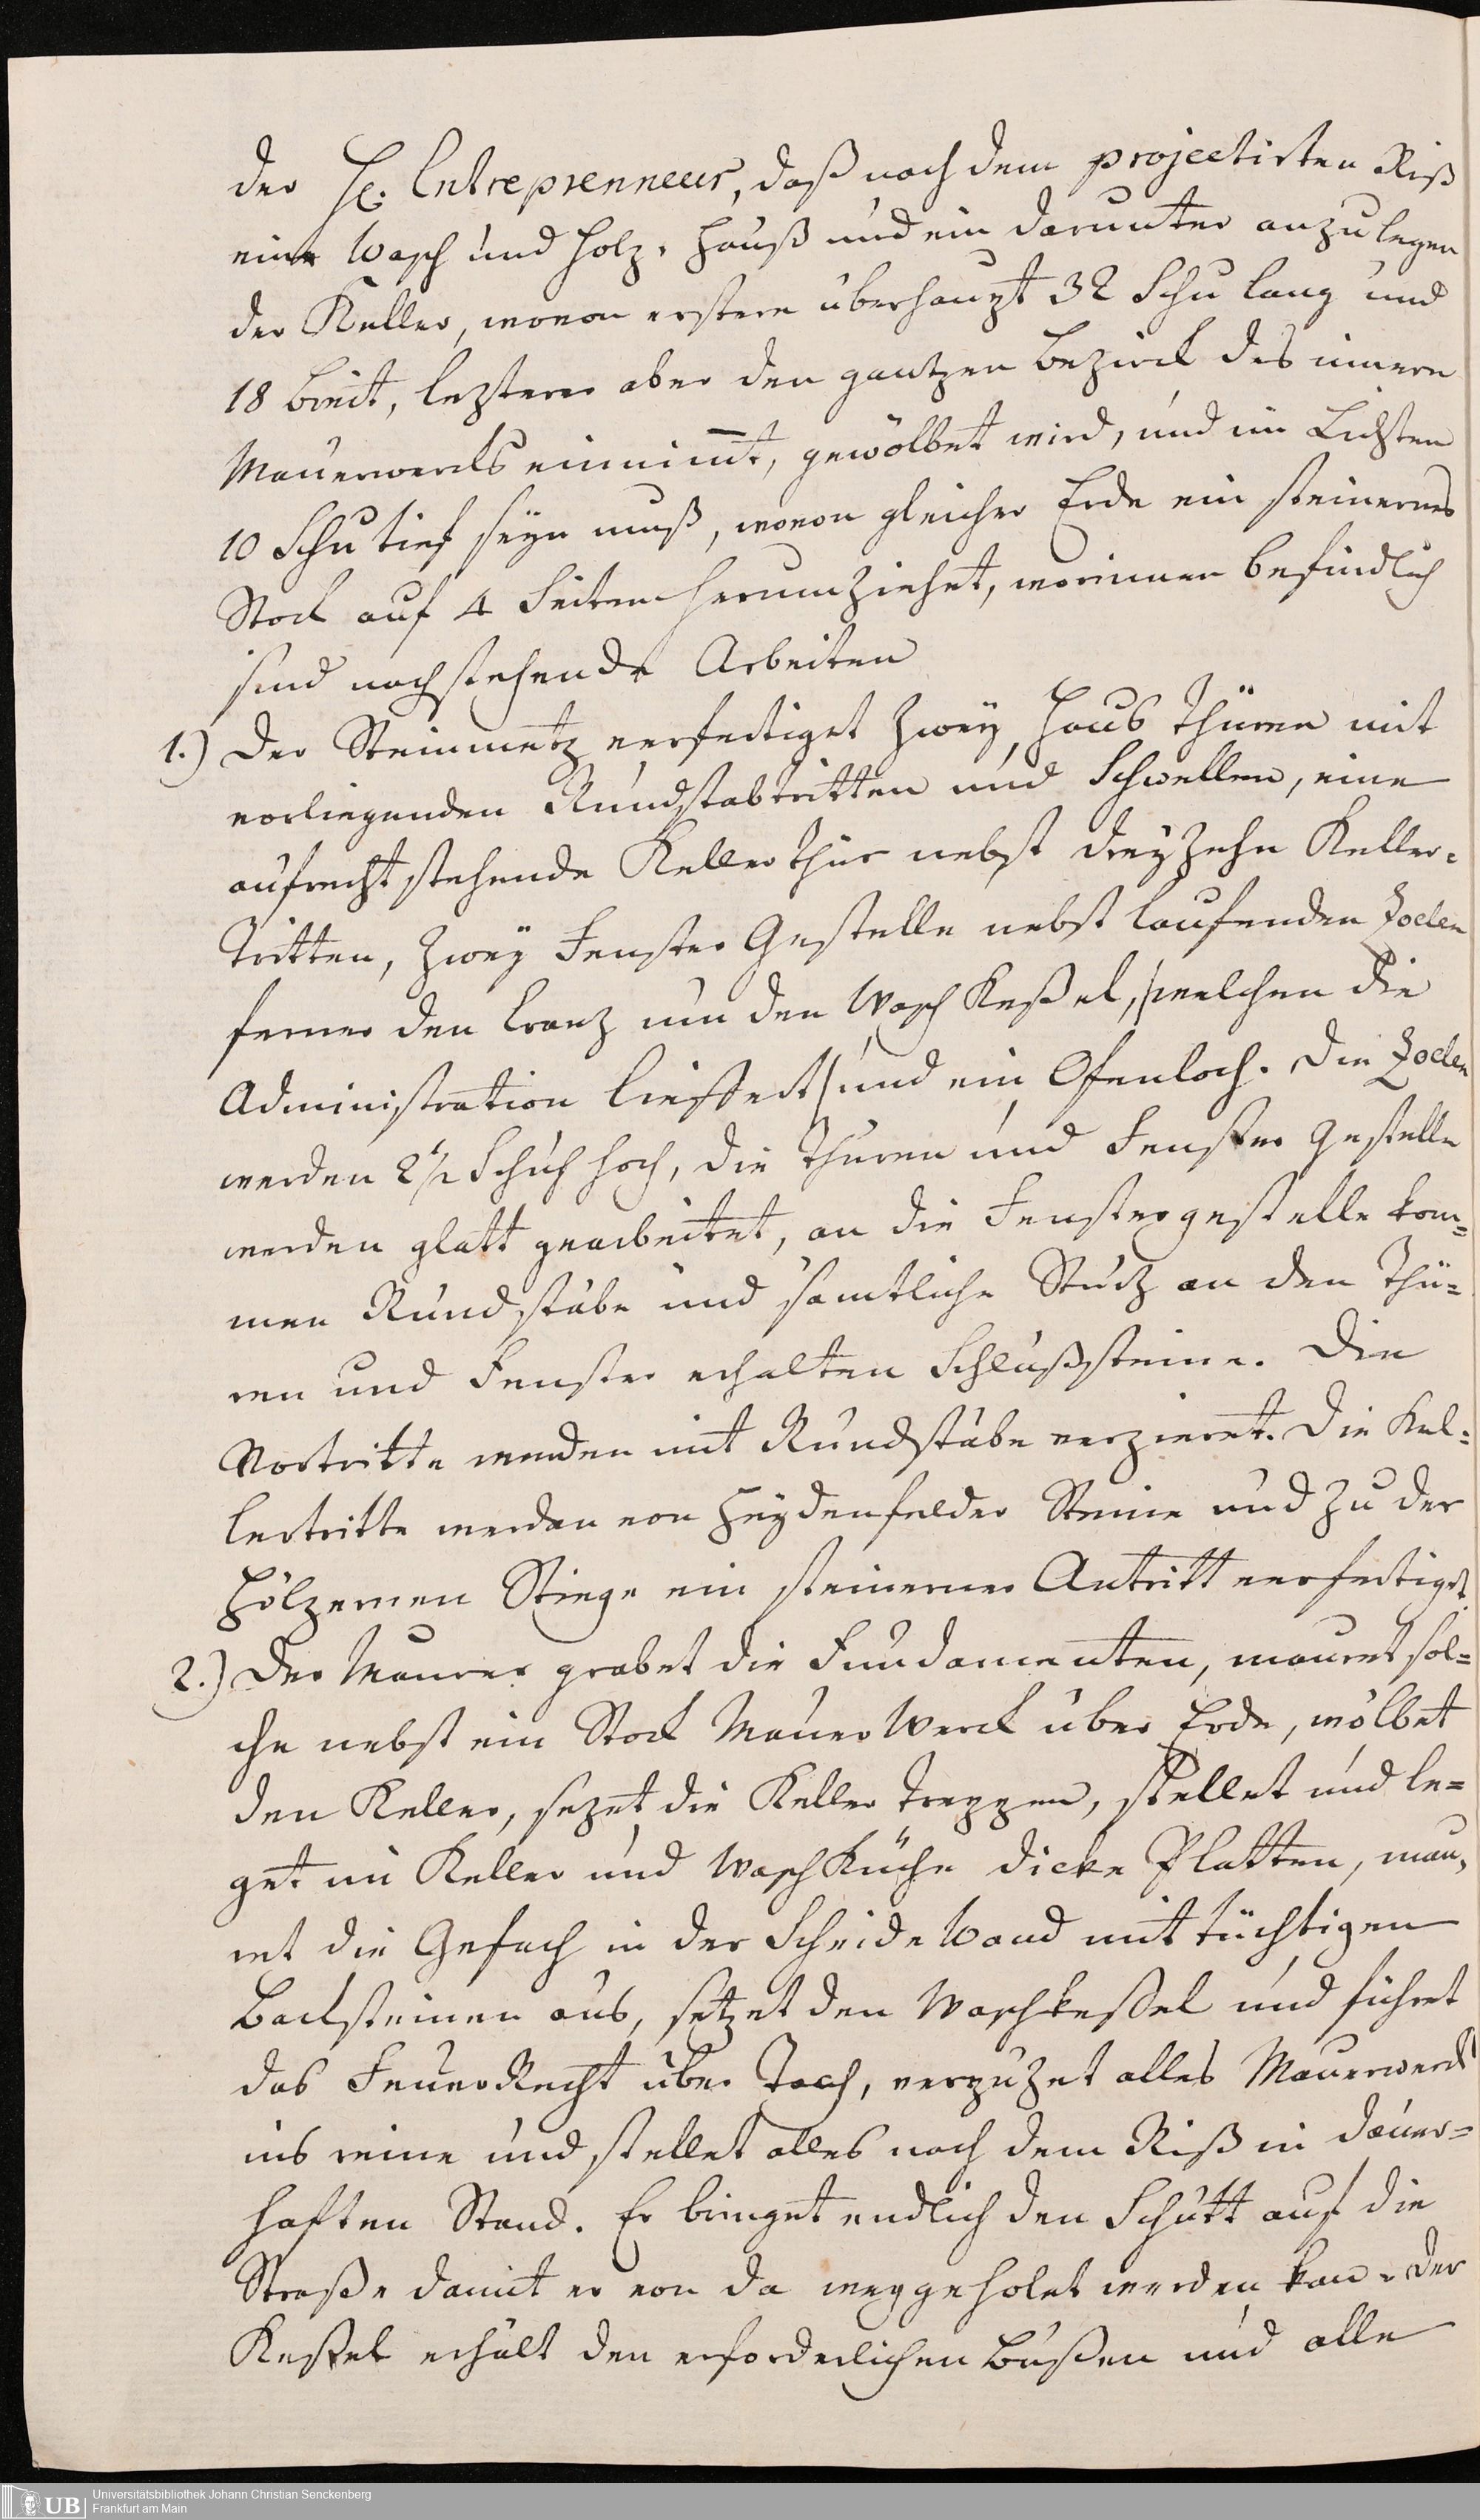 der H. Entreprenneur, daß nach dem projectirten Riß
eine Wasch und Holz-Hauß und ein darunter anzulegen
der Keller, wovon erstere überhaupt 32 Schu lang und
18 breit, lezterer aber den gantzen Bezirck des innern
Mauerwercks einnim̅t, gewölbet wird, und im Lichten
10 Schu tief seyn muß, wovon gleicher Erde ein steinernes
Stock auf 4 Seiten herumziehet, worinnen befindlich
sind nachstehende Arbeiten
1.) Der Steinmetz verfertiget zwey Haus Thüren mit
vorliegenden Rundstabtritten und Schwellen, eine
aufrecht stehende Keller Thür nebst dreyzehn Keller-
Tritten, zwey Fenster Gestelle nebst laufenden Zoclen
ferner den Cranz um den Wasch Keßel, /welchen die
Administration liefert/ und ein Ofenloch. Die Zoclen
werden 2 1/2 Schuh hoch, die Thüren und Fenster Gestelle
werden glatt gearbeitet, an die Fenstergestelle kom-
men Rundstäbe und sämtliche Stürz an den Thü-
ren und Fenster erhalten Schlußsteine. Die
Vortritte werden mit Rundstäbe verzieret. Die Kel-
lertritte werden von Heydenfelder Steine und zu der
Hölzernen Stiege ein steinerner Antritt verfertiget.
2.) Der Maurer grabet die Fundamenten, mauret sol-
che nebst ein Stock Mauer Werck über Erde, wölbet
den Keller, sezet die Keller Treppen, stellet und le-
get im Keller und Wasch Küche dicke Platten, mau-
ret die Gefach in der Scheide Wand mit tüchtigen
Backsteinen aus, setzet den Waschkeßel und führet
das Feuer Recht über Tach, verpuzet alles Mauerwerck
ins reine und stellet alles nach dem Riß in dauer-
haften Stand. Er bringet endlich den Schutt auf die
Straße damit er von da weggeholet werden kan. Der
Keßel erhält den erforderlichen Bußen und alle
UB Universitätsbibliothek Johann Christian Senckenberg
Frankfurt am Main